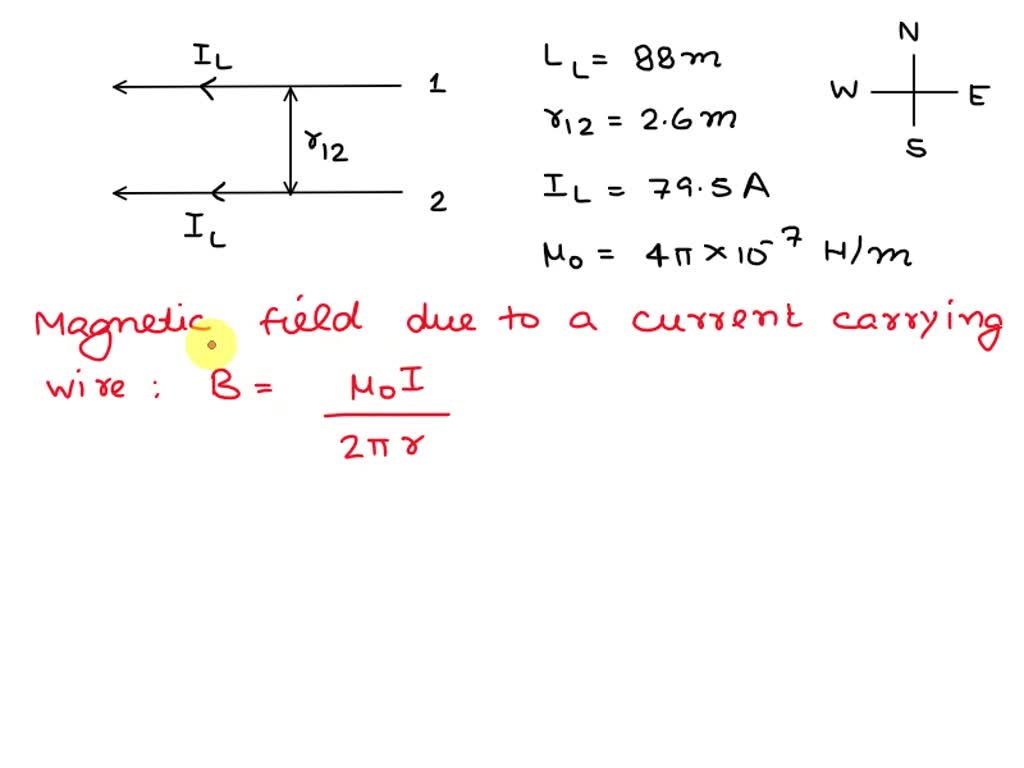 I_L
1
r_12
2
I_L
L_L = 88m
r_12 = 2.6m
I_L = 79.5A
μ_0 = 4π × 10^-7 H/m
N
W E
S
Magnetic field due to a current carrying
wire : B = μ_0 I / 2πr